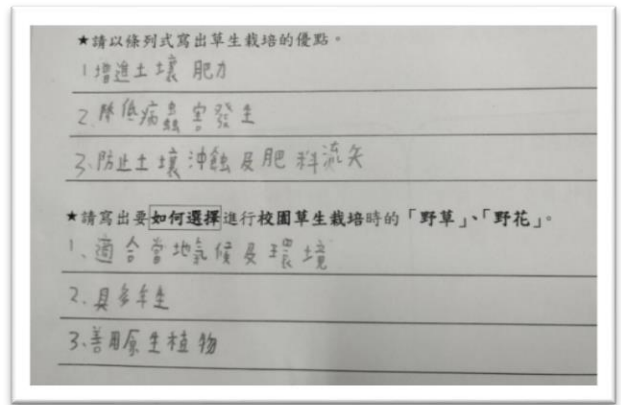 ★請以條列式寫出草生栽培的優點。
1增進土壤 肥力
2.降低病蟲害發生
3.防止土壤沖蝕及肥料流失
★請寫出要如何選擇進行校園草生栽培時的「野草」、「野花」。
1、適合當地氣候及環境
2.具多年生
3.善用原生植物